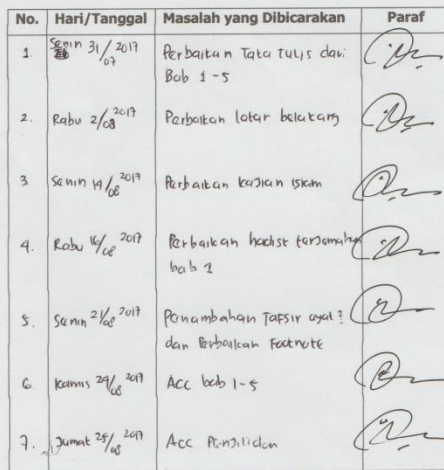 No. Hari/Tanggal Masalah yang Dibicarakan Paraf
1. Senin 31/07 2017 Perbaikan Tata Tulis dari
Bab 1-5
2. Rabu 2/08 2017 Perbaikan latar belakang
3 Senin 14/08 2017 Perbaikan kajian Islam
4. Rabu 16/08 2017 Perbaikan hadist terjamahan
bab 1
5. Senin 21/08 2017 Penambahan Tafsir ayat²
dan Perbaikan Footnote
6. Kamis 24/08 2017 Acc bab 1-5
7. Jumat 25/08 2017 Acc Penjilidan